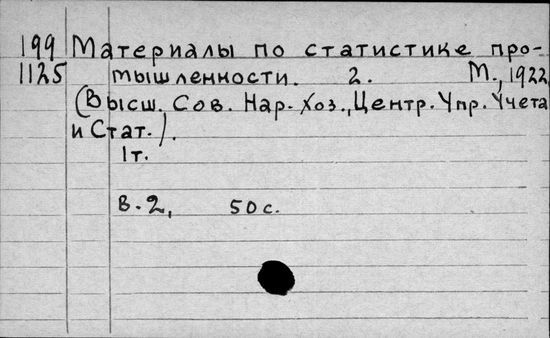 199 Материалы по статистике про-
1125 мышленности. 2. М., 1922.
(Высш. Сов. Нар. Хоз., Центр. Упр. Учета
и Стат.).
1т.
В. 2, 50 с.